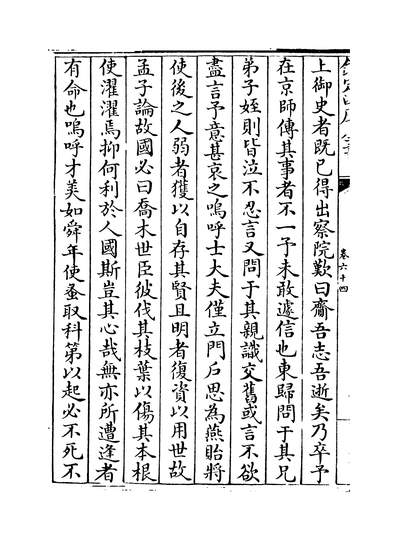 欽定四庫全書
卷六十四
上御史者既已得出察院歎曰齎吾志吾逝矣乃卒予
在京師傳其事者不一予未敢遽信也東歸問于其兄
弟子姪則皆泣不忍言又問于其親識交舊或言不欲
盡言予意甚哀之嗚呼士大夫僅立門戶思為燕貽將
使後之人弱者獲以自存其賢且明者復資以用世故
孟子論故國必曰喬木世臣彼伐其枝葉以傷其本根
使濯濯焉抑何利於人國斯豈其心哉無亦所遭逢者
有命也嗚呼才美如舜年使蚤取科第以起必不死不